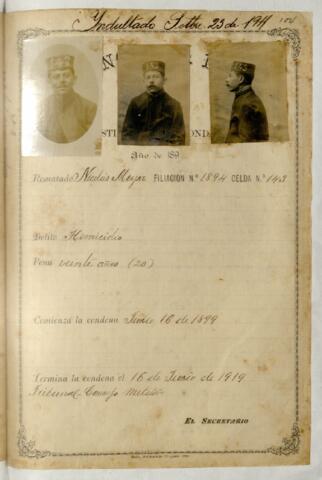 Indultado Setbre. 23 de 1911
104
Año de 189
Rematado Nicolás Meyar FILIACIÓN N.º 1894 CELDA N.º 143
Delito Homicidio
Pena veinte años (20)
Comienza la condena Junio 16 de 1899
Termina la condena el 16 de Junio de 1919
Tribunal Consejo
EL SECRETARIO